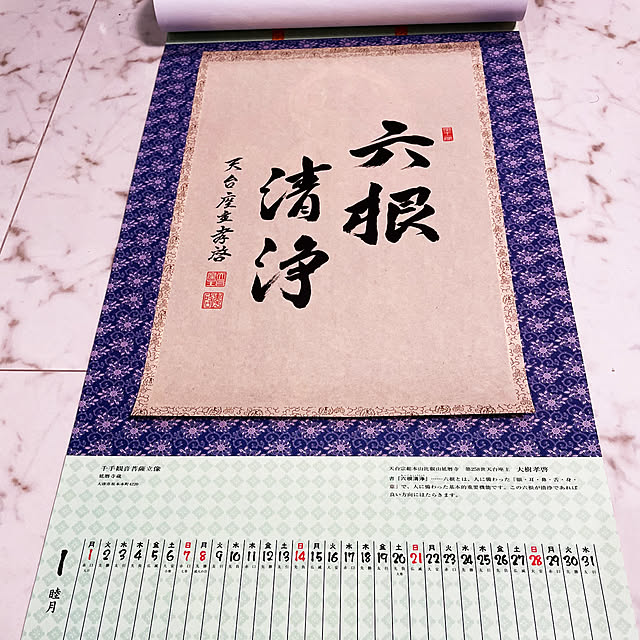 六根
清浄
天台座主孝啓
千手観音菩薩立像
延暦寺蔵
大津市坂本本町4220
天台宗総本山比叡山延暦寺 第258世天台座主 大樹孝啓
書『六根清浄』――六根とは、人に備わった「眼・耳・鼻・舌・身・
意」で、人に備わった基本的重要機能です。この六根が清浄であれば
良い方向にはたらきます。
1
睦月
月 火 水 木 金 土 日 月 火 水 木 金 土 日 月 火 水 木 金 土 日 月 火 水 木 金 土 日 月 火 水
1 2 3 4 5 6 7 8 9 10 11 12 13 14 15 16 17 18 19 20 21 22 23 24 25 26 27 28 29 30 31